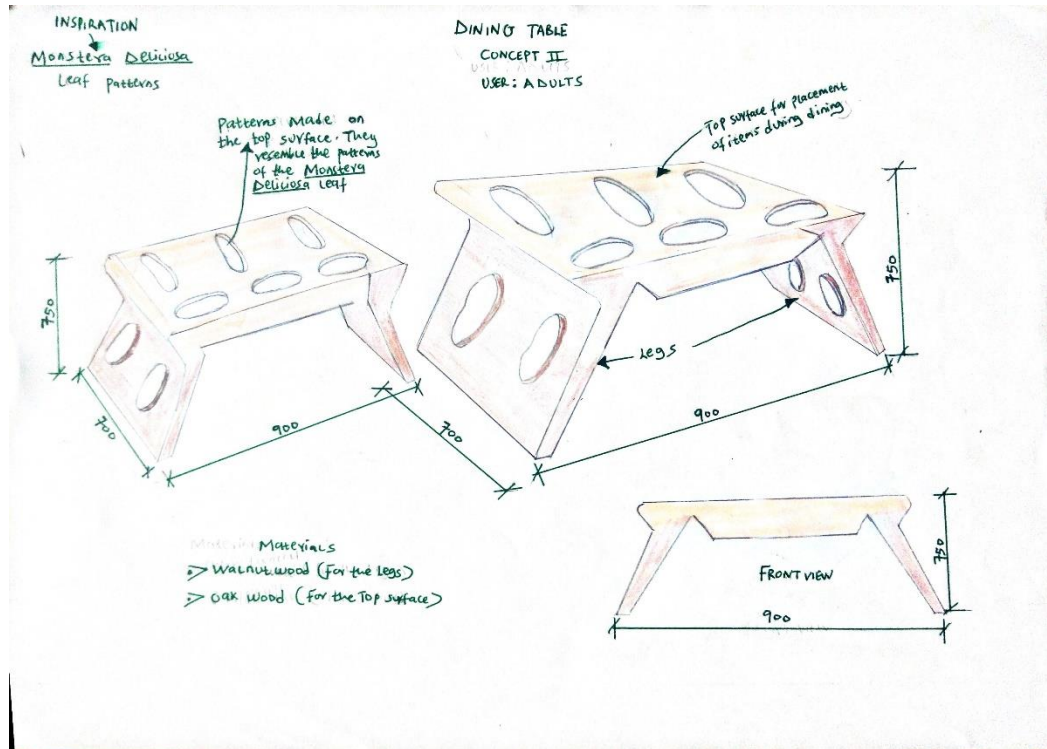 INSPIRATION
Monstera Deliciosa
Leaf Patterns
DINING TABLE
CONCEPT II
USER: ADULTS
Patterns Made on
the top surface. They
resemble the patterns
of the Monstera
Deliciosa Leaf
Top surface for placement
of items during dining
750
700
900
700
Legs
750
900
Materials
Walnut wood (for the Legs)
Oak wood (for the Top surface)
FRONT VIEW
750
900